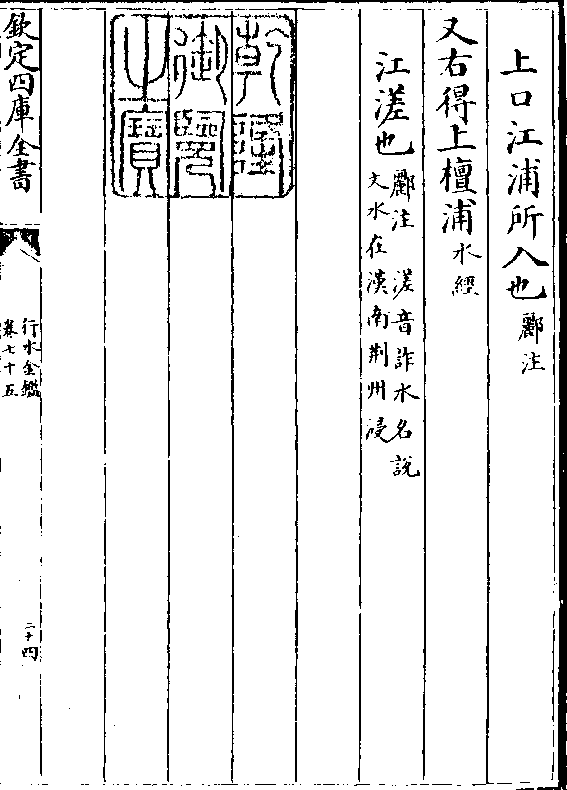 上口江浦所入也酈注
又右得上檀浦水經
江溠也酈注 溠音詐水名說
文水在漢南荆州浸
乾隆御覽之寶
欽定四庫全書
行水金鑑
卷七十五
二十四